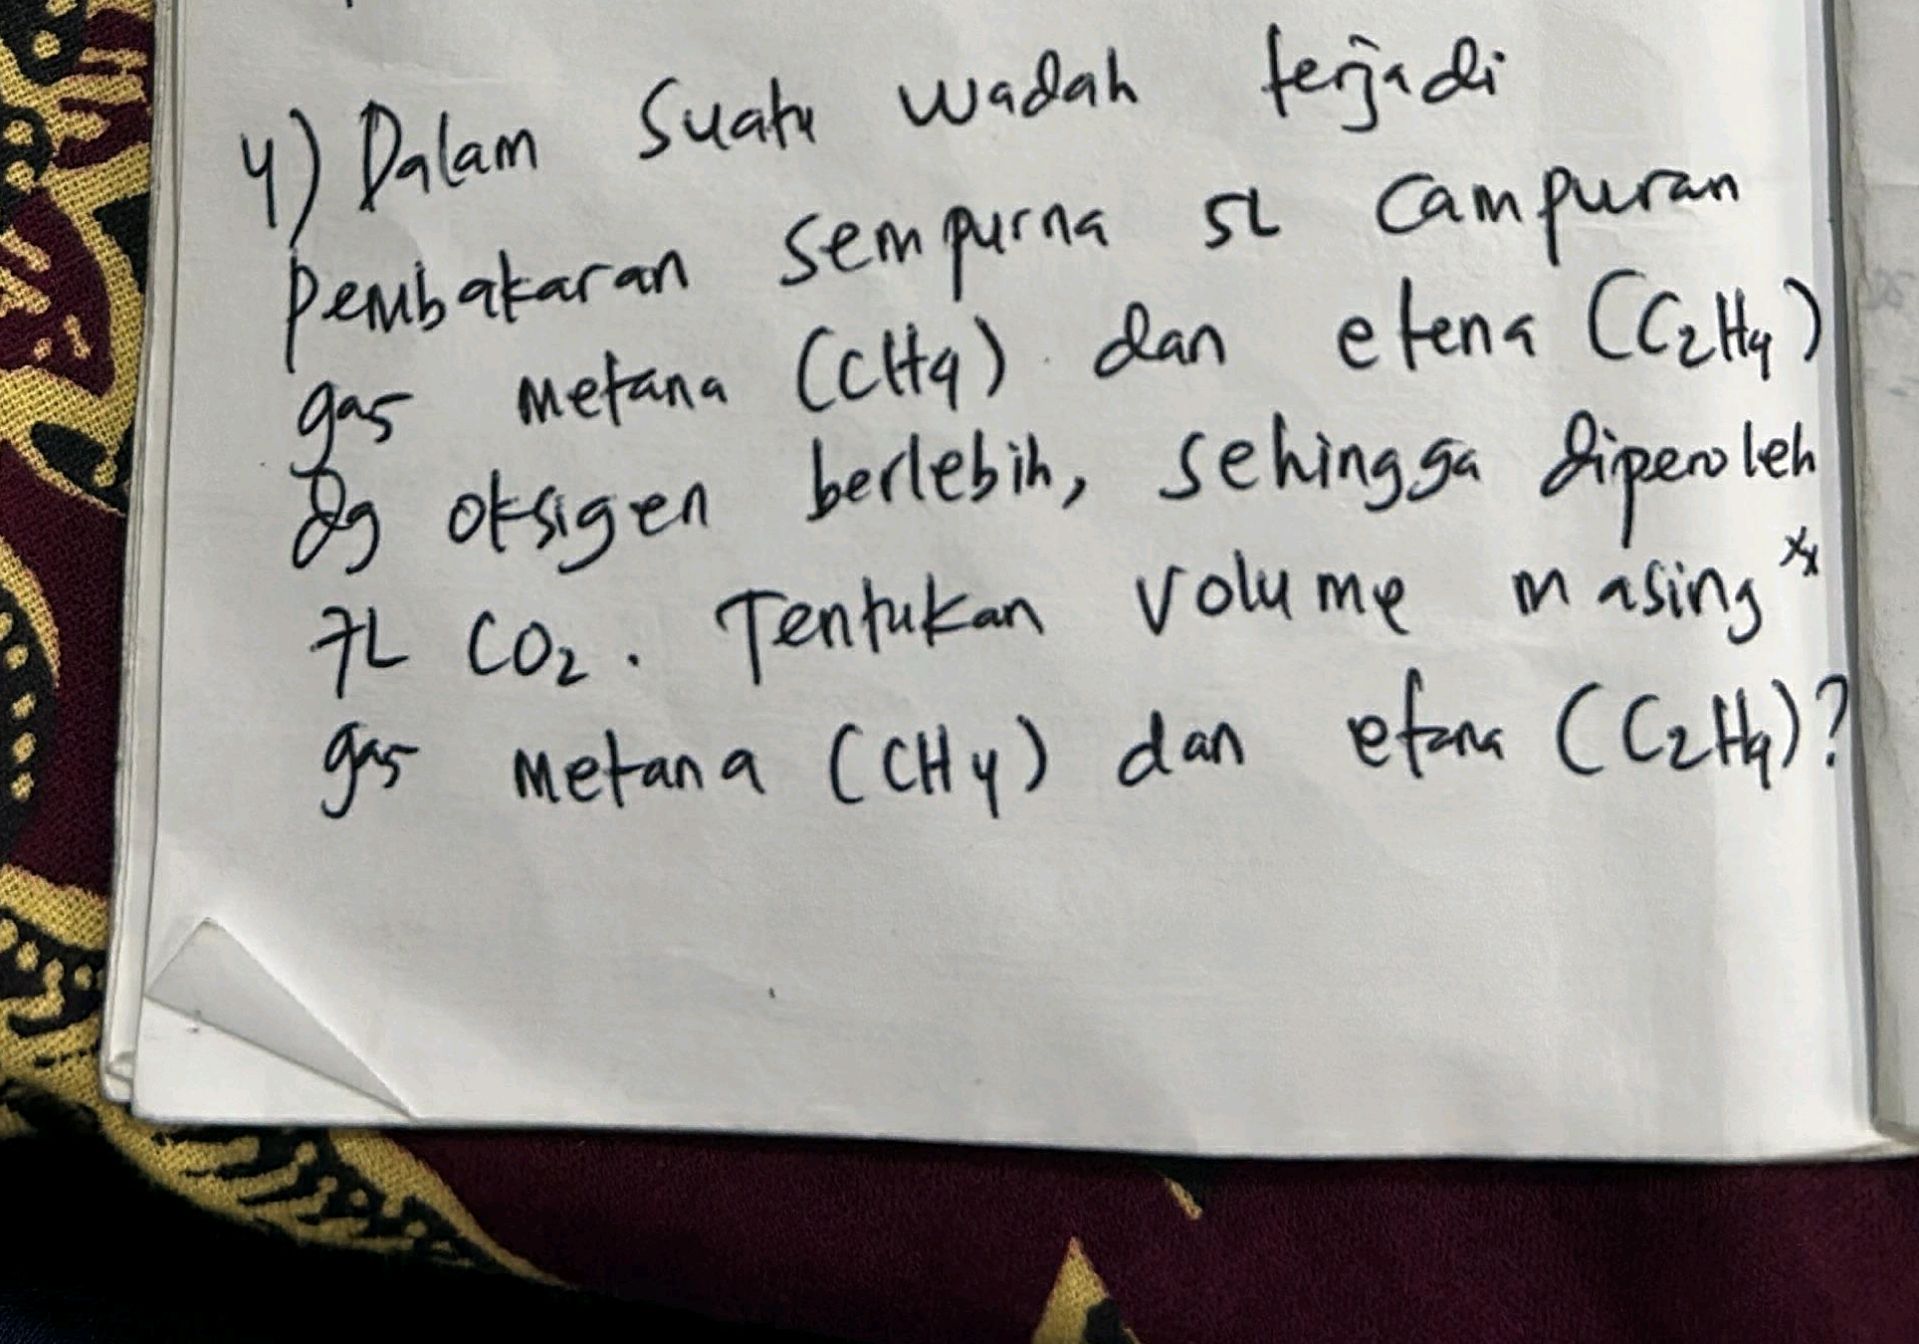 4) Dalam suatu wadah terjadi
pembakaran sempurna 5L campuran
gas metana (CH4) dan etena (C2H4)
dg oksigen berlebih, sehingga diperoleh
7L CO2. Tentukan volume masing
gas metana (CH4) dan etana (C2H4)?